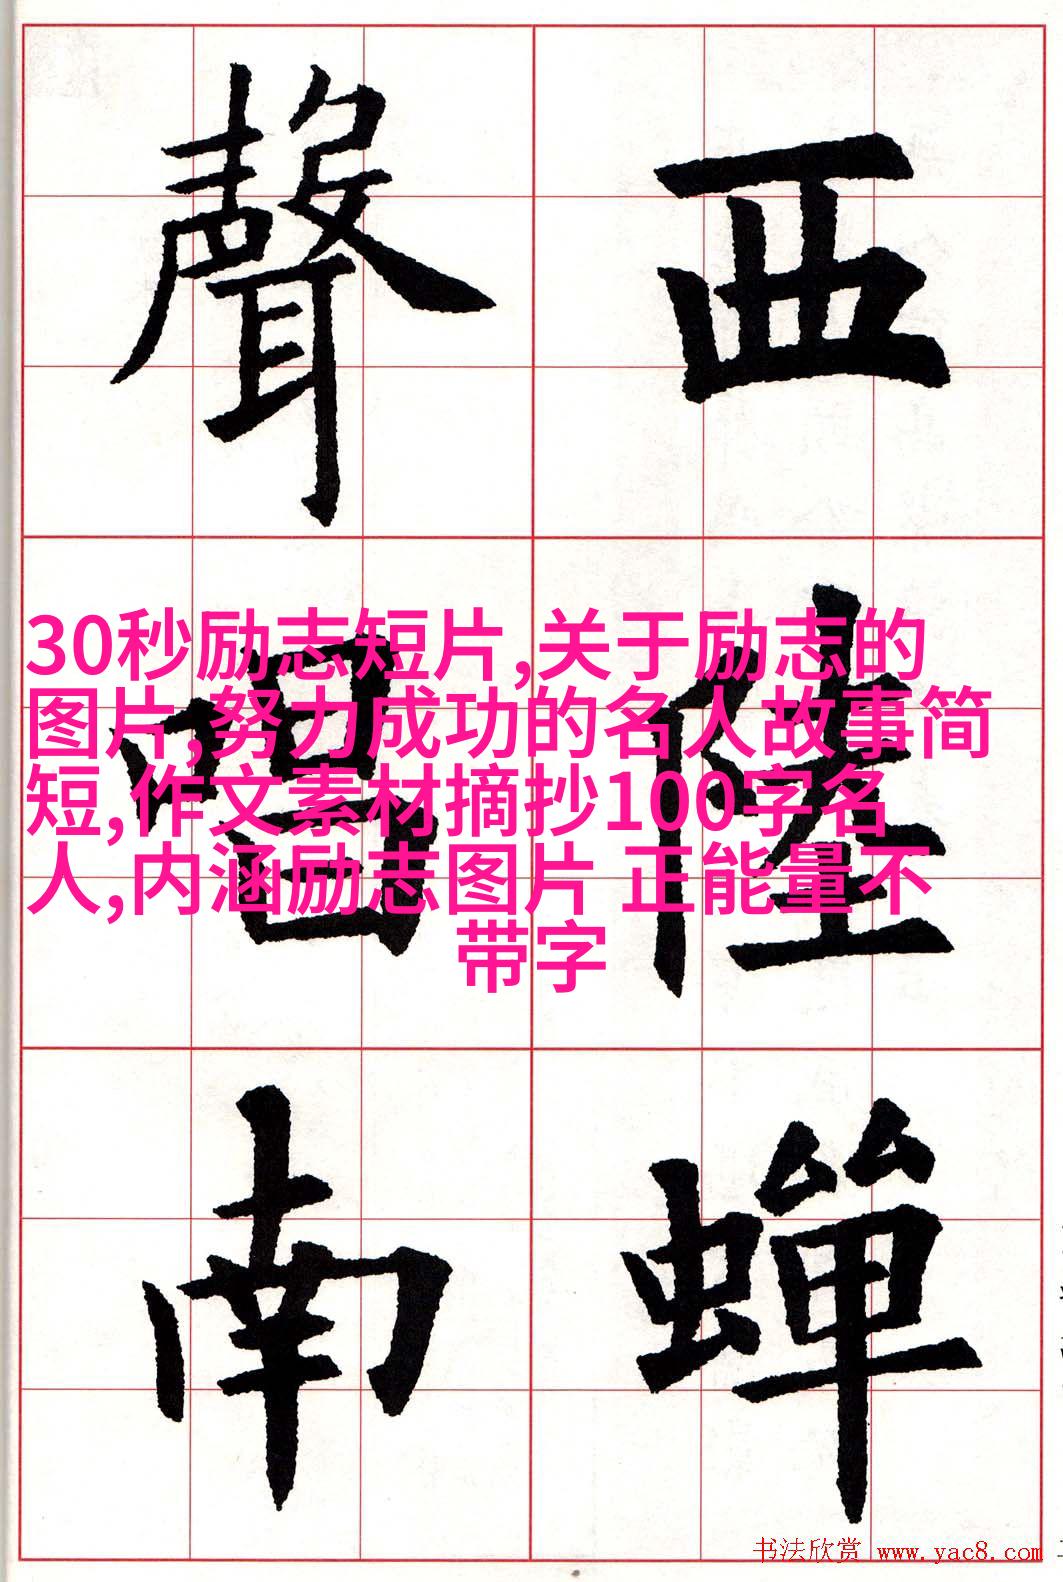 西陸蟬
聲唱南
30秒励志短片,关于励志的
图片,努力成功的名人故事简
短,作文素材摘抄100字名
人,内涵励志图片 正能量不
带字
书法欣赏 www.yac8.com